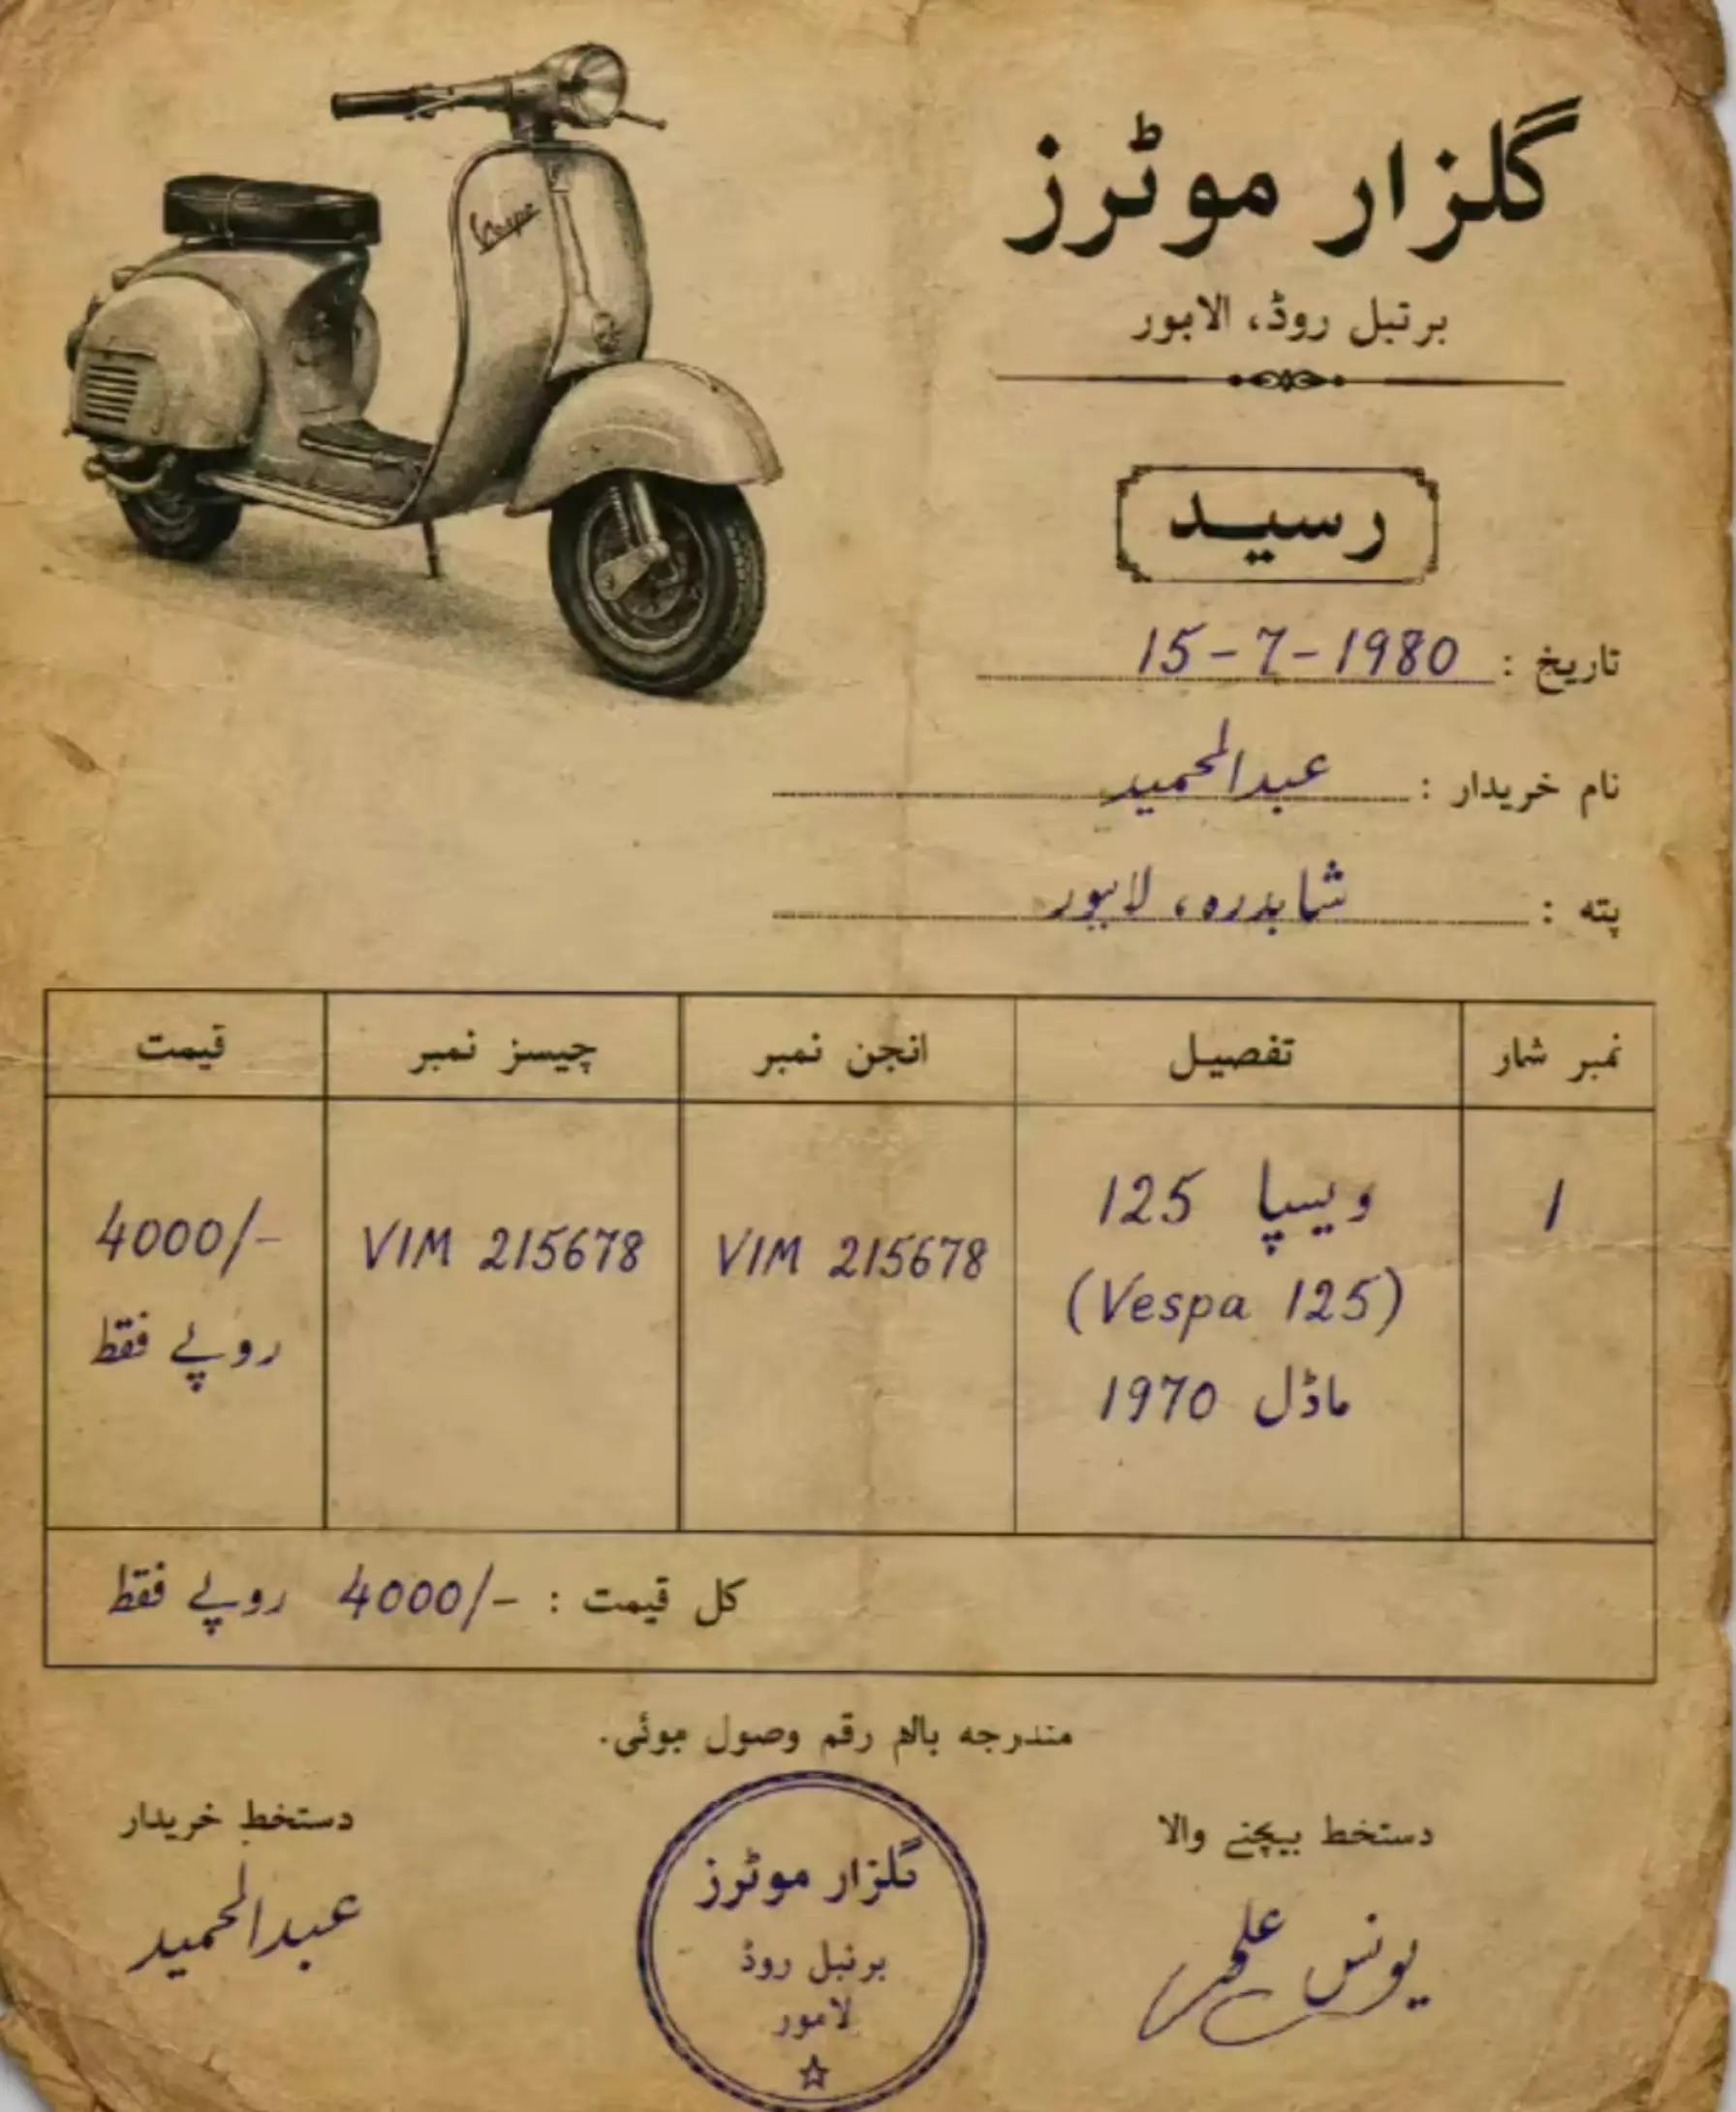 Vespa
گلزار موٹرز
برتبل روڈ، الابور
رسید
تاریخ : 15-7-1980
نام خریدار : عبدالحمید
پتہ : شاہدرہ، لاہور
نمبر شمار تفصیل انجن نمبر چیسز نمبر قیمت
1 ویسپا 125 VIM 215678 VIM 215678 4000/-
(Vespa 125) روپے فقط
ماڈل 1970
کل قیمت : 4000/- روپے فقط
مندرجہ بالا رقم وصول ہوئی.
دستخط بیچنے والا
یونس علی
دستخط خریدار
عبدالحمید
گلزار موٹرز
برنبل روڈ
لاہور